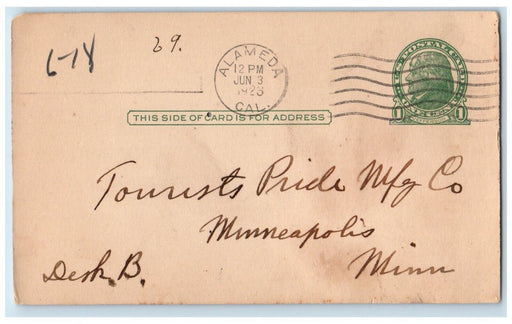 6-18
29.
ALAMEDA
12 PM
JUN 3
1923
CAL.
THIS SIDE OF CARD IS FOR ADDRESS
1 1
Tourists Pride Mfg Co
Minneapolis
Minn
Desk B.